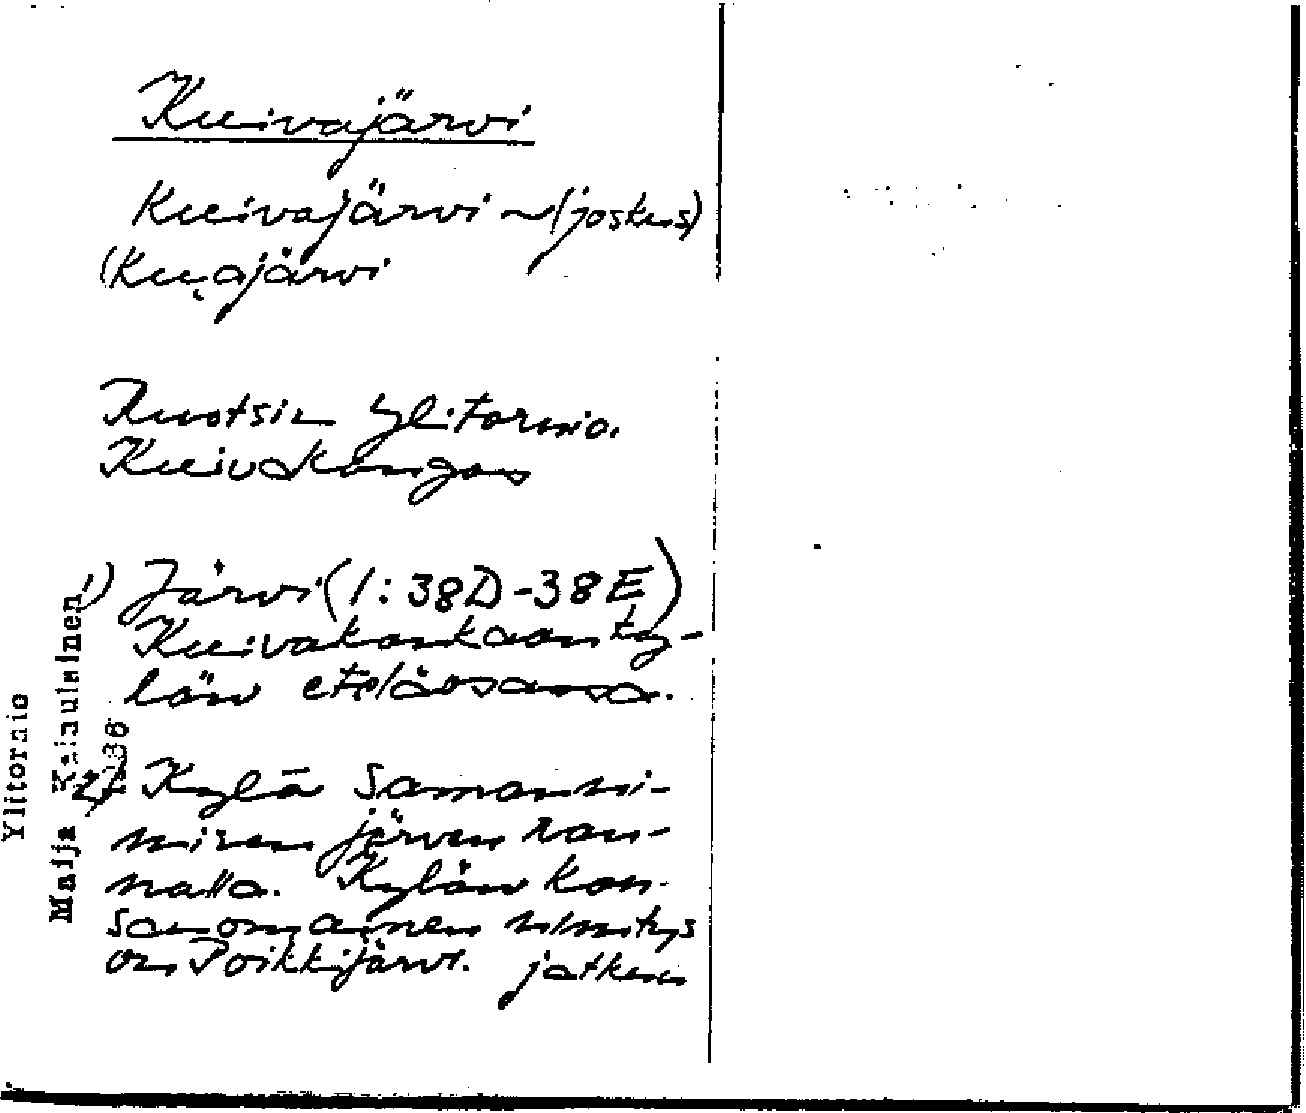 Kuivajärvi
Kuivajärvi ~ (joskus)
(Kui̯ajärvi
Ruotsin Ylitornio.
Kuivakangas
1) Järvi (1: 38D-38E)
Kuivakankaan ky-
län eteläosassa.
2) Kylä samanni-
misen järven ran-
nalla. Kylän kan-
sanomainen nimitys
on Poikkijärvi. jatkuu
Ylitornio
Maija Kelaulainen